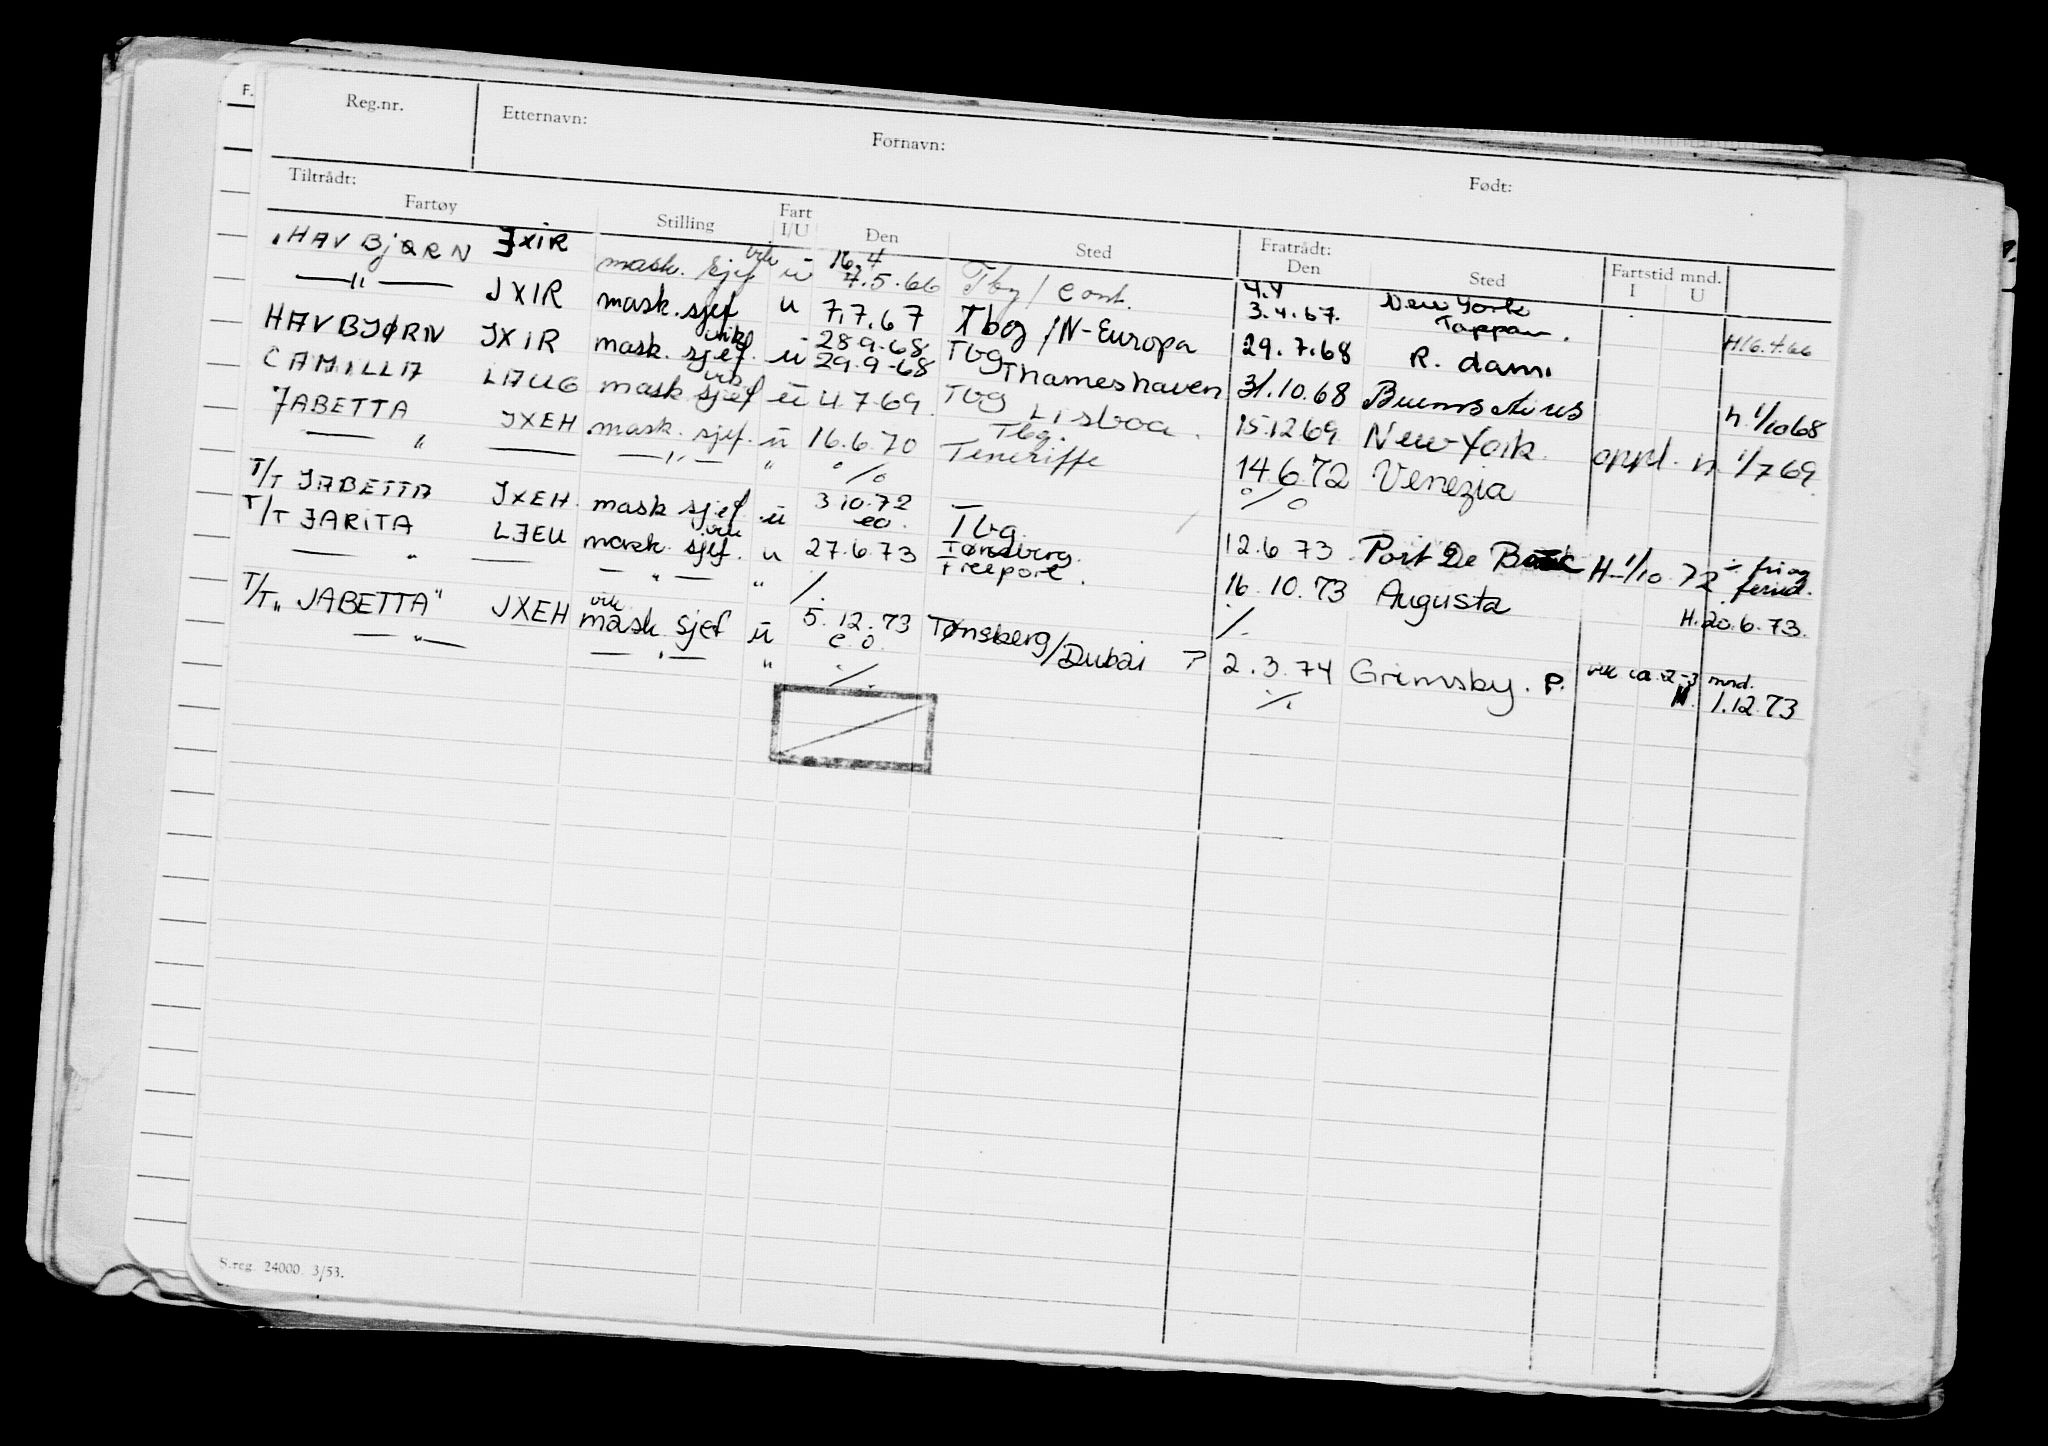 F.
Reg.nr. Etternavn: Fornavn: Født:
Tiltrådt: Fratrådt:
Fartøy Stilling Fart I/U Den Sted Den Sted Fartstid mnd. I U
HAVBJØRN JXIR mask. sjef vik ū 16.4 7.5.66 Tbg / Cont. 4.4 3.4.67. New York Tappan. H16.4.66
—"— JXIR mask. sjef u 7.7.67 Tbg /N-Europa 29.7.68 R. dam.
HAVBJØRN JXIR mask. sjef. vik ū 28.9.68 29.9-68 Tbg Thameshaven 31.10.68 Buenos Aires h 1/1068
CAMILLA LAUG mask sjef vik ū 4.7.69. Tbg Lisboa. 15.12.69 New York. oppl. h 1/7 69.
JABETTA JXEH mask. sjef. ū 16.6.70 Tbg. Teneriffe 14.6.72 Venezia
— " — —"— " % %
T/T JABETTA JXEH. mask sjef. ū 3.10.72 eo. Tbg. 12.6 73 Port De Bouc H-1/10. 72 ./. fri og feried.
T/T JARITA LJEU mask. sjef. vik u 27.6.73 Tønsberg. Freeport. 16.10.73 Augusta H.20.6.73.
— " — —"— " ./. ./.
T/T "JABETTA" JXEH vik. mask sjef ū 5.12.73 e.o. Tønsberg/Dubai ? 2.3.74 Grimsby. P. vik ca. 2-3 mnd. H. 1.12.73
—"— —"— " ./. ./.
S.reg. 24000. 3/53.